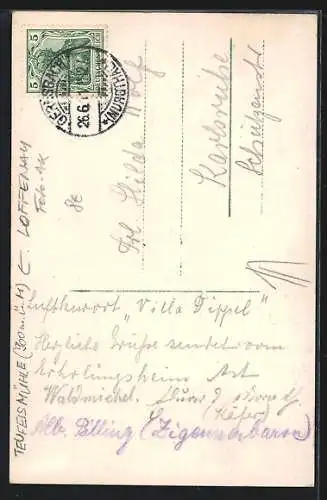 5 5
GERNSBACH
26.6.
* (MURGTHAL) *
Frl. Hilda Wolf
Karlsruhe
Schützenstr.
TEUFELSMÜHLE (900 m. ü. M) C. LOFFENAU
Foto-AK
8e
Luftkurort „Villa Dippel"
Herzliche Grüße sendet vom
Erholungsheim
Waldmichel
(Käfer)
Alb. Pilling (Zigeunerbaron)